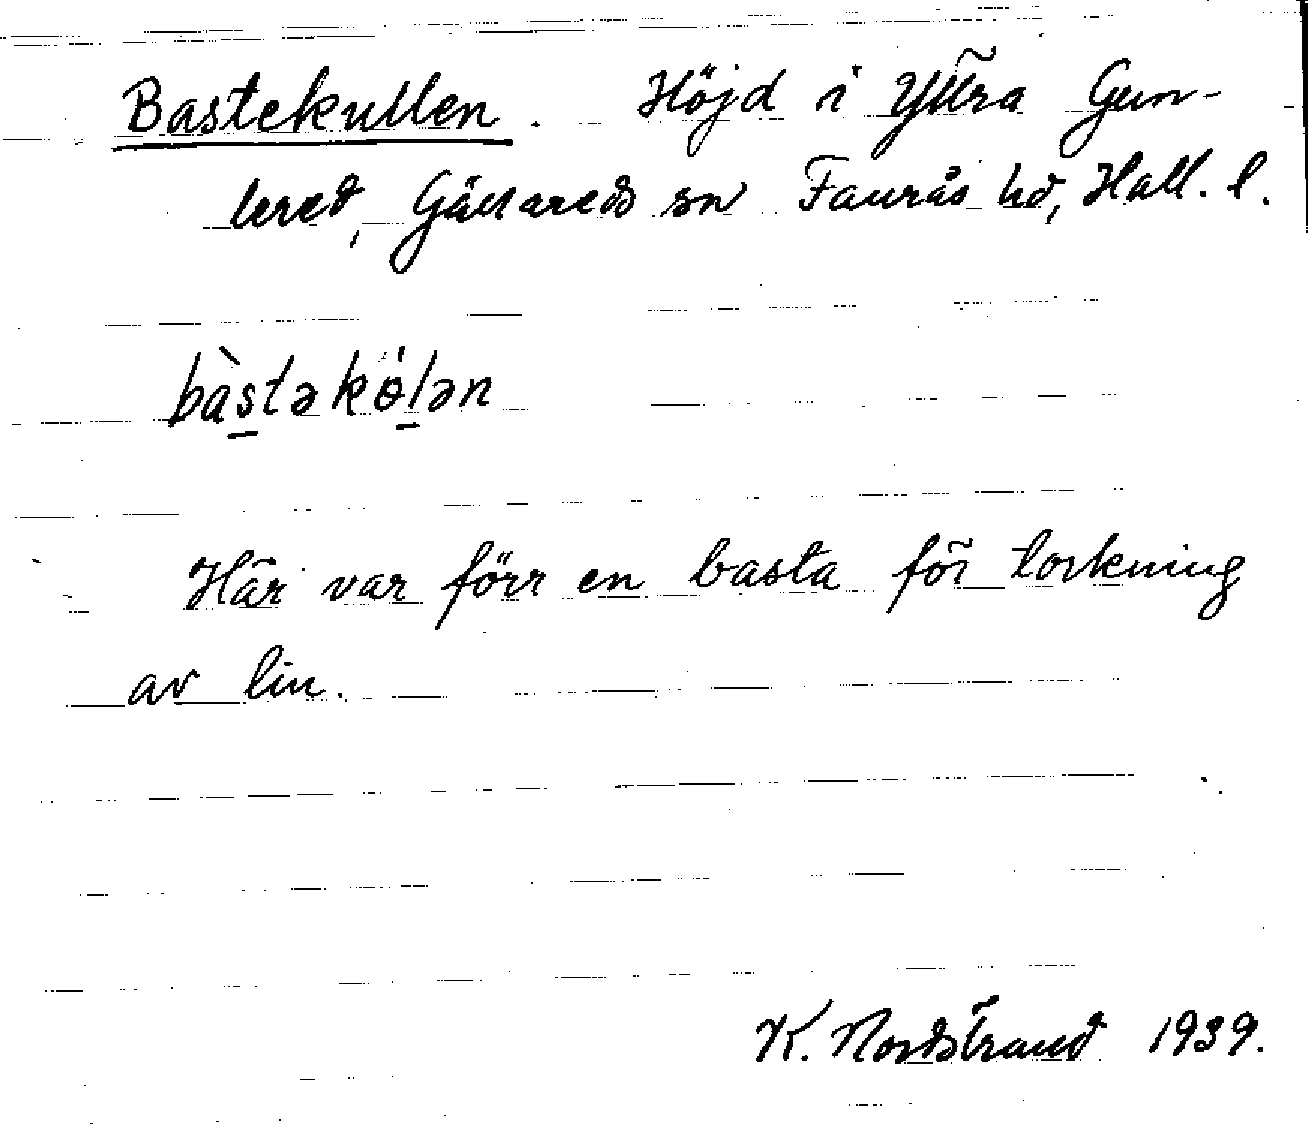 Bastekullen. Höjd i Yttra Gun-
bered, Gällareds sn Faurås hd, Hall. l.
bàstəkө́lən
Här var förr en basta för torkning
av lin.
K. Nordstrand 1939.